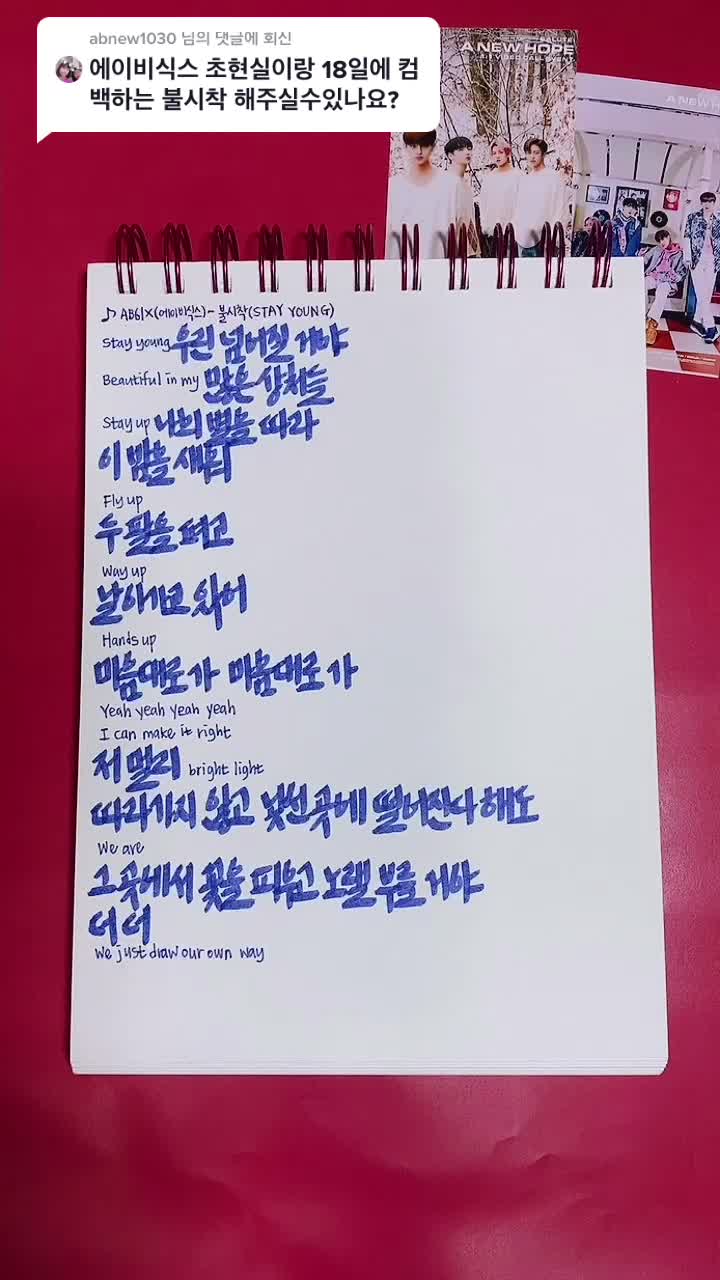 abnew1030 님의 댓글에 회신
에이비식스 초현실이랑 18일에 컴
백하는 불시착 해주실수있나요?
SALUTE
A NEW HOPE
VIDEO CALL EVENT
A NEW H
♪ AB6IX(에이비식스)-불시착(STAY YOUNG)
Stay young 우린 넘어질 거야
Beautiful in my 많은 상처들
Stay up 너희 별을 따라
이 밤을 새워
Fly up
두 팔을 펴고
Way up
날아가고 있어
Hands up
마음대로 가 마음대로 가
Yeah yeah yeah yeah
I can make it right
저 멀리 bright light
따라가지 않고 낯선 곳에 떨어진다 해도
We are
그곳에서 꽃을 피우고 노랠 부를 거야
더 더
We just draw our own way